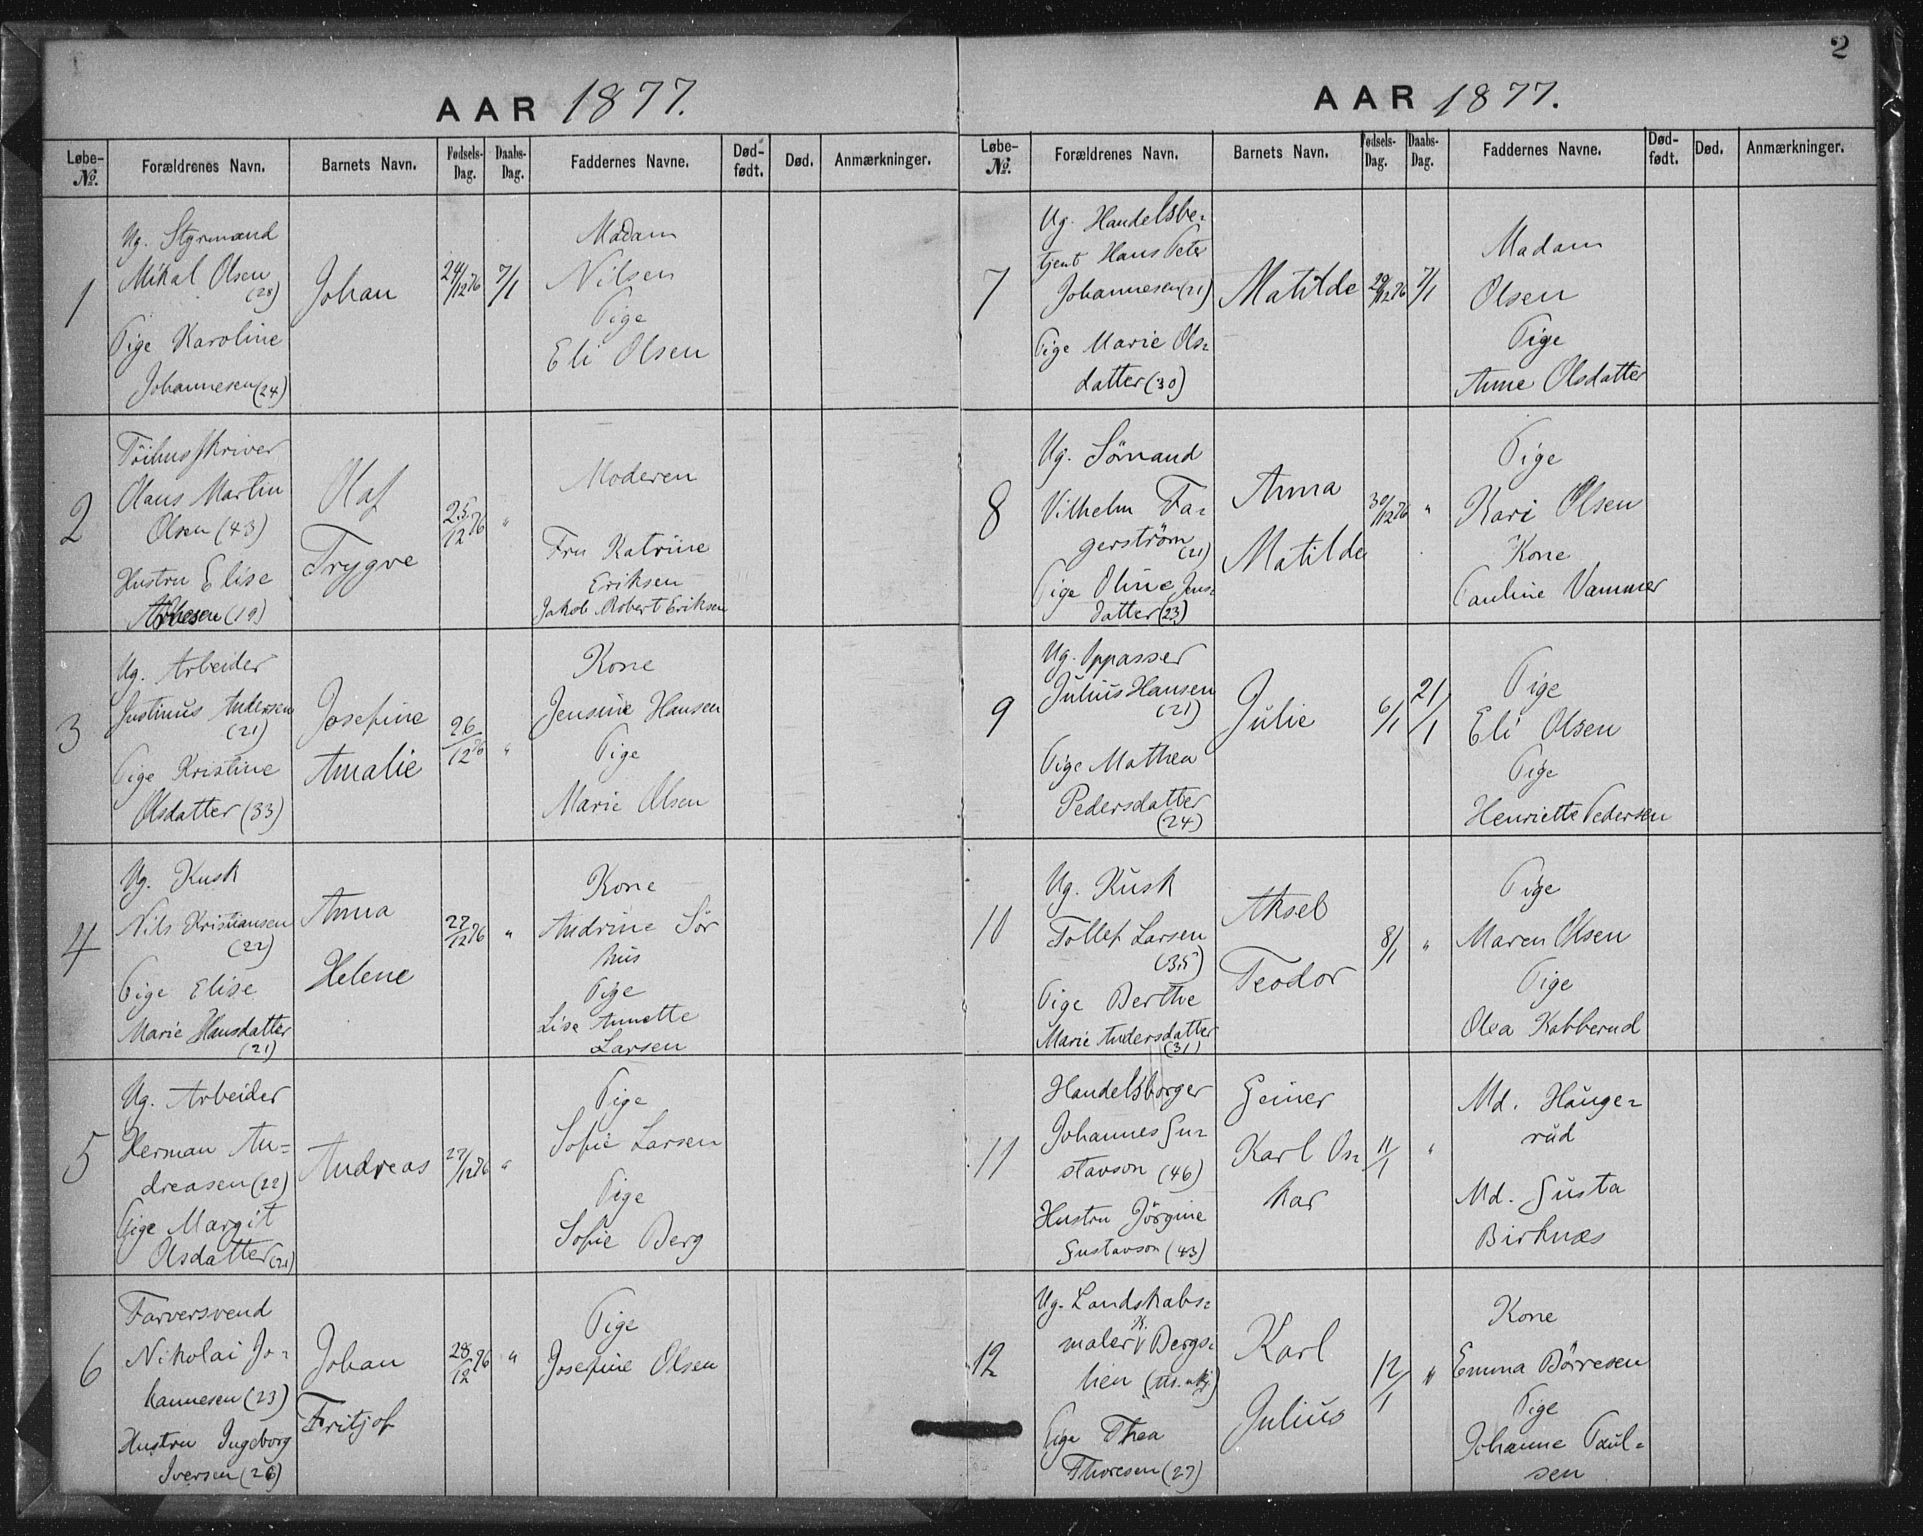 AAR 1877.
Løbe- No. Forældrenes Navn. Barnets Navn. Fødsels- Dag. Daabs- Dag. Faddernes Navne. Død- født. Død. Anmærkninger.
1
Ug. Styrmand
Mikal Olsen
(28)
Pige Karoline
Johannesen (24)
Johan
24/12 76
7/1
Madam
Nilsen
Pige
Eli Olsen
2
Töihusskriver
Olaus Martin
Olsen (43)
Hustru Elise
(19)
Olaf
Trygve
25/12 76
"
Moderen
Fru Katrine
Eriksen
Jakob Robert Eriksen
3
Ug. Arbeider
Justinus Andersen
(21)
Pige Kristine
Olsdatter (33)
Josefine
Amalie
26/12 76
"
Kone
Jensine Hansen
Pige
Marie Olsen
4
Ug. Kusk
Nils Kristiansen
(22)
Pige Elise
Marie Hansdatter
(21)
Anna
Helene
27/12 76
"
Kone
Andrine Sör
hus
Pige
Lise Annette
Larsen
5
Ug. Arbeider
Herman An-
dreasen (22)
Pige Margit
Olsdatter (21)
Andreas
27/12 76
"
Pige
Sofie Larsen
Pige
Sofie Berg
6
Farversvend
Nikolai Jo-
hannesen (23)
Hustru Ingeborg
Iversen (26)
Johan
Fritjof
28/12 76
"
Pige
Josefine Olsen
2
AAR 1877.
Løbe- No. Forældrenes Navn. Barnets Navn. Fødsels- Dag. Daabs- Dag. Faddernes Navne. Død- født. Død. Anmærkninger.
7
Ug. Handelsbe-
tjent Hans Peter
Johannesen (21)
Pige Marie Ols-
datter (30)
Matilde
29/12 76
7/1
Madam
Olsen
Pige
Anne Olsdatter
8
Ug. Sömand
Vilhelm Fa-
gerström
(21)
Pige Oline Jens-
datter (23)
Anna
Matilde
30/12 76
"
Pige
Kari Olsen
Kone
Pauline Vammer
9
Ug. Oppasser
Julius Hansen
(21)
Pige Mathea
Pedersdatter
(24)
Julie
6/1
21/1
Pige
Eli Olsen
Pige
Henriette Pedersen
10
Ug. Kusk
Tollef Larsen
(35)
Pige Berthe
Marie Andersdatter
(31)
Aksel
Teodor
8/1
"
Pige
Maren Olsen
Pige
Olea Kabberud
11
Handelsborger
Johannes Gu-
stavson (46)
Hustru Jörgine
Gustavson (43)
Geiner
Karl Os-
kar
11/1
"
Md. Hauge-
rud
Md. Gusta
Birknæs
12
Ug. Landskabs-
maler K. Bergs-
lien
Pige Thea
Thoresen (27)
Karl
Julius
12/1
"
Kone
Emma Börresen
Pige
Johanne Paul-
sen